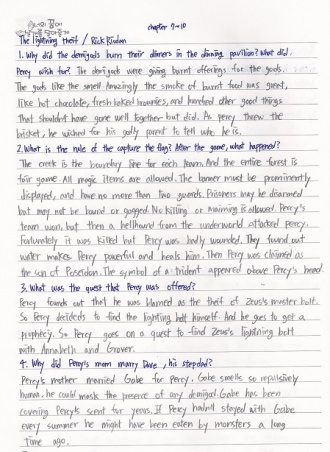 chapter 7~10
The lightning thief / Rick Riodan
1. Why did the demigods burn their dinners in the dinning pavilion? What did
Percy wish for? The demigods were giving burnt offerings for the gods.
The gods like the smell. Amazingly the smoke of burnt food was great,
like hot chocolate, fresh baked brownies, and hundred other good things
That shouldn't have gone well together but did. As percy threw the
brisket, he wished for his godly parent to tell who he is.
2. What is the rule of the capture the flag? After the game, what happened?
The creek is the boundry line for each team. And the entire forest is
fair game. All magic items are allowed. The banner must be prominently
displayed, and have no more than two guards. Prisoners may be disarmed
but may not be bound or gagged. No killing or maiming is allowed. Percy's
team won, but then a hellhound from the underworld attacked percy.
Fortunately it was killed but Percy was badly wounded. They found out
water makes Percy powerful and heals him. Then Percy was claimed as
the son of Poseidon. The symbol of a trident appeared above Percy's head.
3. What was the quest that Percy was offered?
Percy founds out that he was blamed as the theft of Zeus's master bolt.
So Percy decideds to find the lighting bolt himself. And he goes to get a
prophecy. So Percy goes on a quest to find Zeus's lightning bolt
with Annabeth and Grover.
4. Why did Percy's mom marry Dave, his stepdad?
Percy's mother married Gabe for Percy. Gabe smells so repulsively
human, he could mask the presence of any demigod. Gabe has been
covering Percy's scent for years. If Percy hadn't stayed with Gabe
every summer he might have been eaten by monsters a long
time ago.